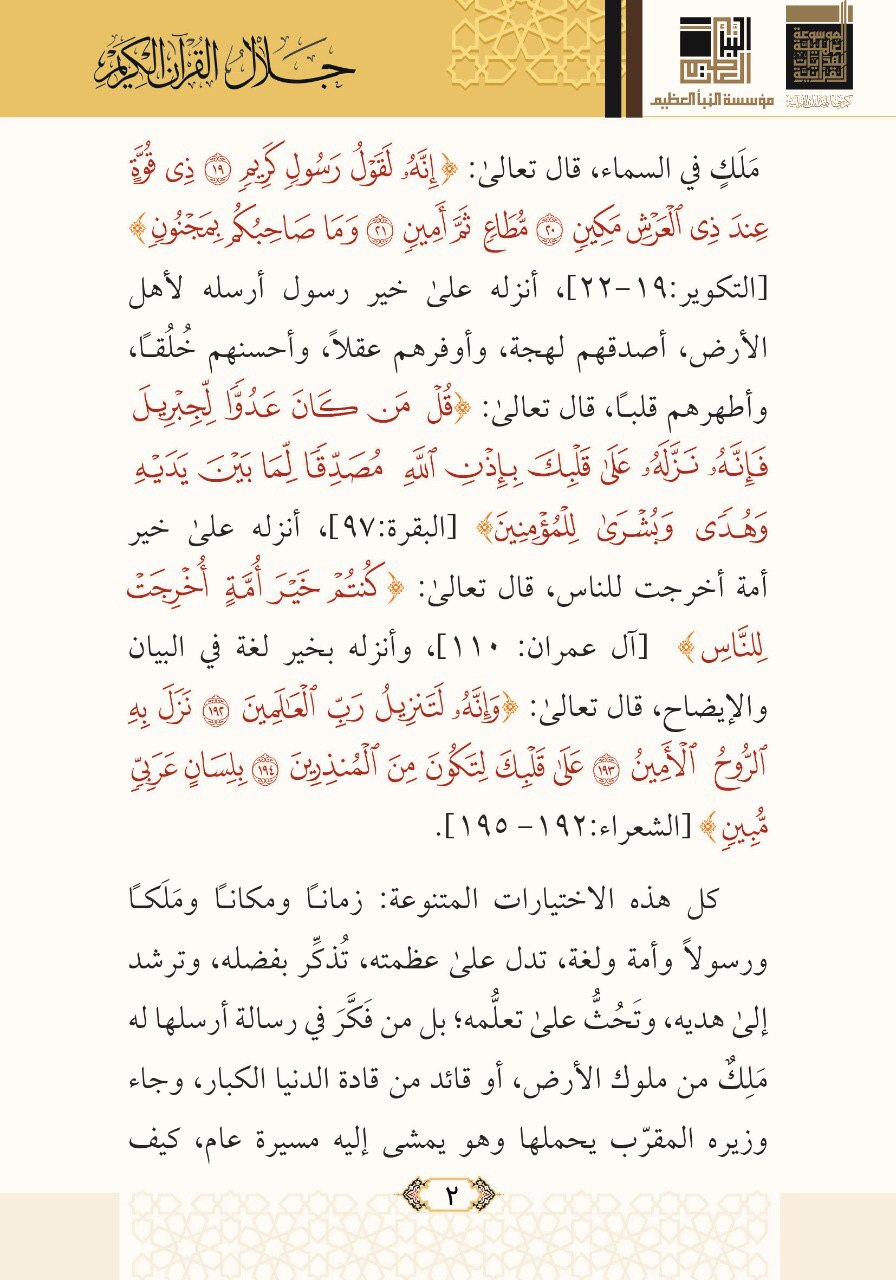 جلال القرآن الكريم
النبأ العظيم
مؤسسة النبأ العظيم
مَلَكٍ في السماء، قال تعالىٰ: ﴿إِنَّهُۥ لَقَوْلُ رَسُولٍ كَرِيمٍ ١٩ ذِى قُوَّةٍ
عِندَ ذِى ٱلْعَرْشِ مَكِينٍ ٢٠ مُّطَاعٍ ثَمَّ أَمِينٍ ٢١ وَمَا صَاحِبُكُم بِمَجْنُونٍ﴾
[التكوير:١٩-٢٢]، أنزله علىٰ خير رسول أرسله لأهل
الأرض، أصدقهم لهجة، وأوفرهم عقلاً، وأحسنهم خُلُقًا،
وأطهرهم قلبًا، قال تعالىٰ: ﴿قُلْ مَن كَانَ عَدُوًّا لِّجِبْرِيلَ
فَإِنَّهُۥ نَزَّلَهُۥ عَلَىٰ قَلْبِكَ بِإِذْنِ ٱللَّهِ مُصَدِّقًا لِّمَا بَيْنَ يَدَيْهِ
وَهُدًى وَبُشْرَىٰ لِلْمُؤْمِنِينَ﴾ [البقرة:٩٧]، أنزله علىٰ خير
أمة أخرجت للناس، قال تعالىٰ: ﴿كُنتُمْ خَيْرَ أُمَّةٍ أُخْرِجَتْ
لِلنَّاسِ﴾ [آل عمران: ١١٠]، وأنزله بخير لغة في البيان
والإيضاح، قال تعالىٰ: ﴿وَإِنَّهُۥ لَتَنزِيلُ رَبِّ ٱلْعَالَمِينَ ١٩٢ نَزَلَ بِهِ
ٱلرُّوحُ ٱلْأَمِينُ ١٩٣ عَلَىٰ قَلْبِكَ لِتَكُونَ مِنَ ٱلْمُنذِرِينَ ١٩٤ بِلِسَانٍ عَرَبِىٍّ
مُّبِينٍ﴾ [الشعراء:١٩٢- ١٩٥].
كل هذه الاختيارات المتنوعة: زمانًا ومكانًا ومَلَكًا
ورسولاً وأمة ولغة، تدل علىٰ عظمته، تُذكِّر بفضله، وترشد
إلىٰ هديه، وتَحُثُّ علىٰ تعلُّمه؛ بل من فَكَّرَ في رسالة أرسلها له
مَلِكٌ من ملوك الأرض، أو قائد من قادة الدنيا الكبار، وجاء
وزيره المقرّب يحملها وهو يمشى إليه مسيرة عام، كيف
٢